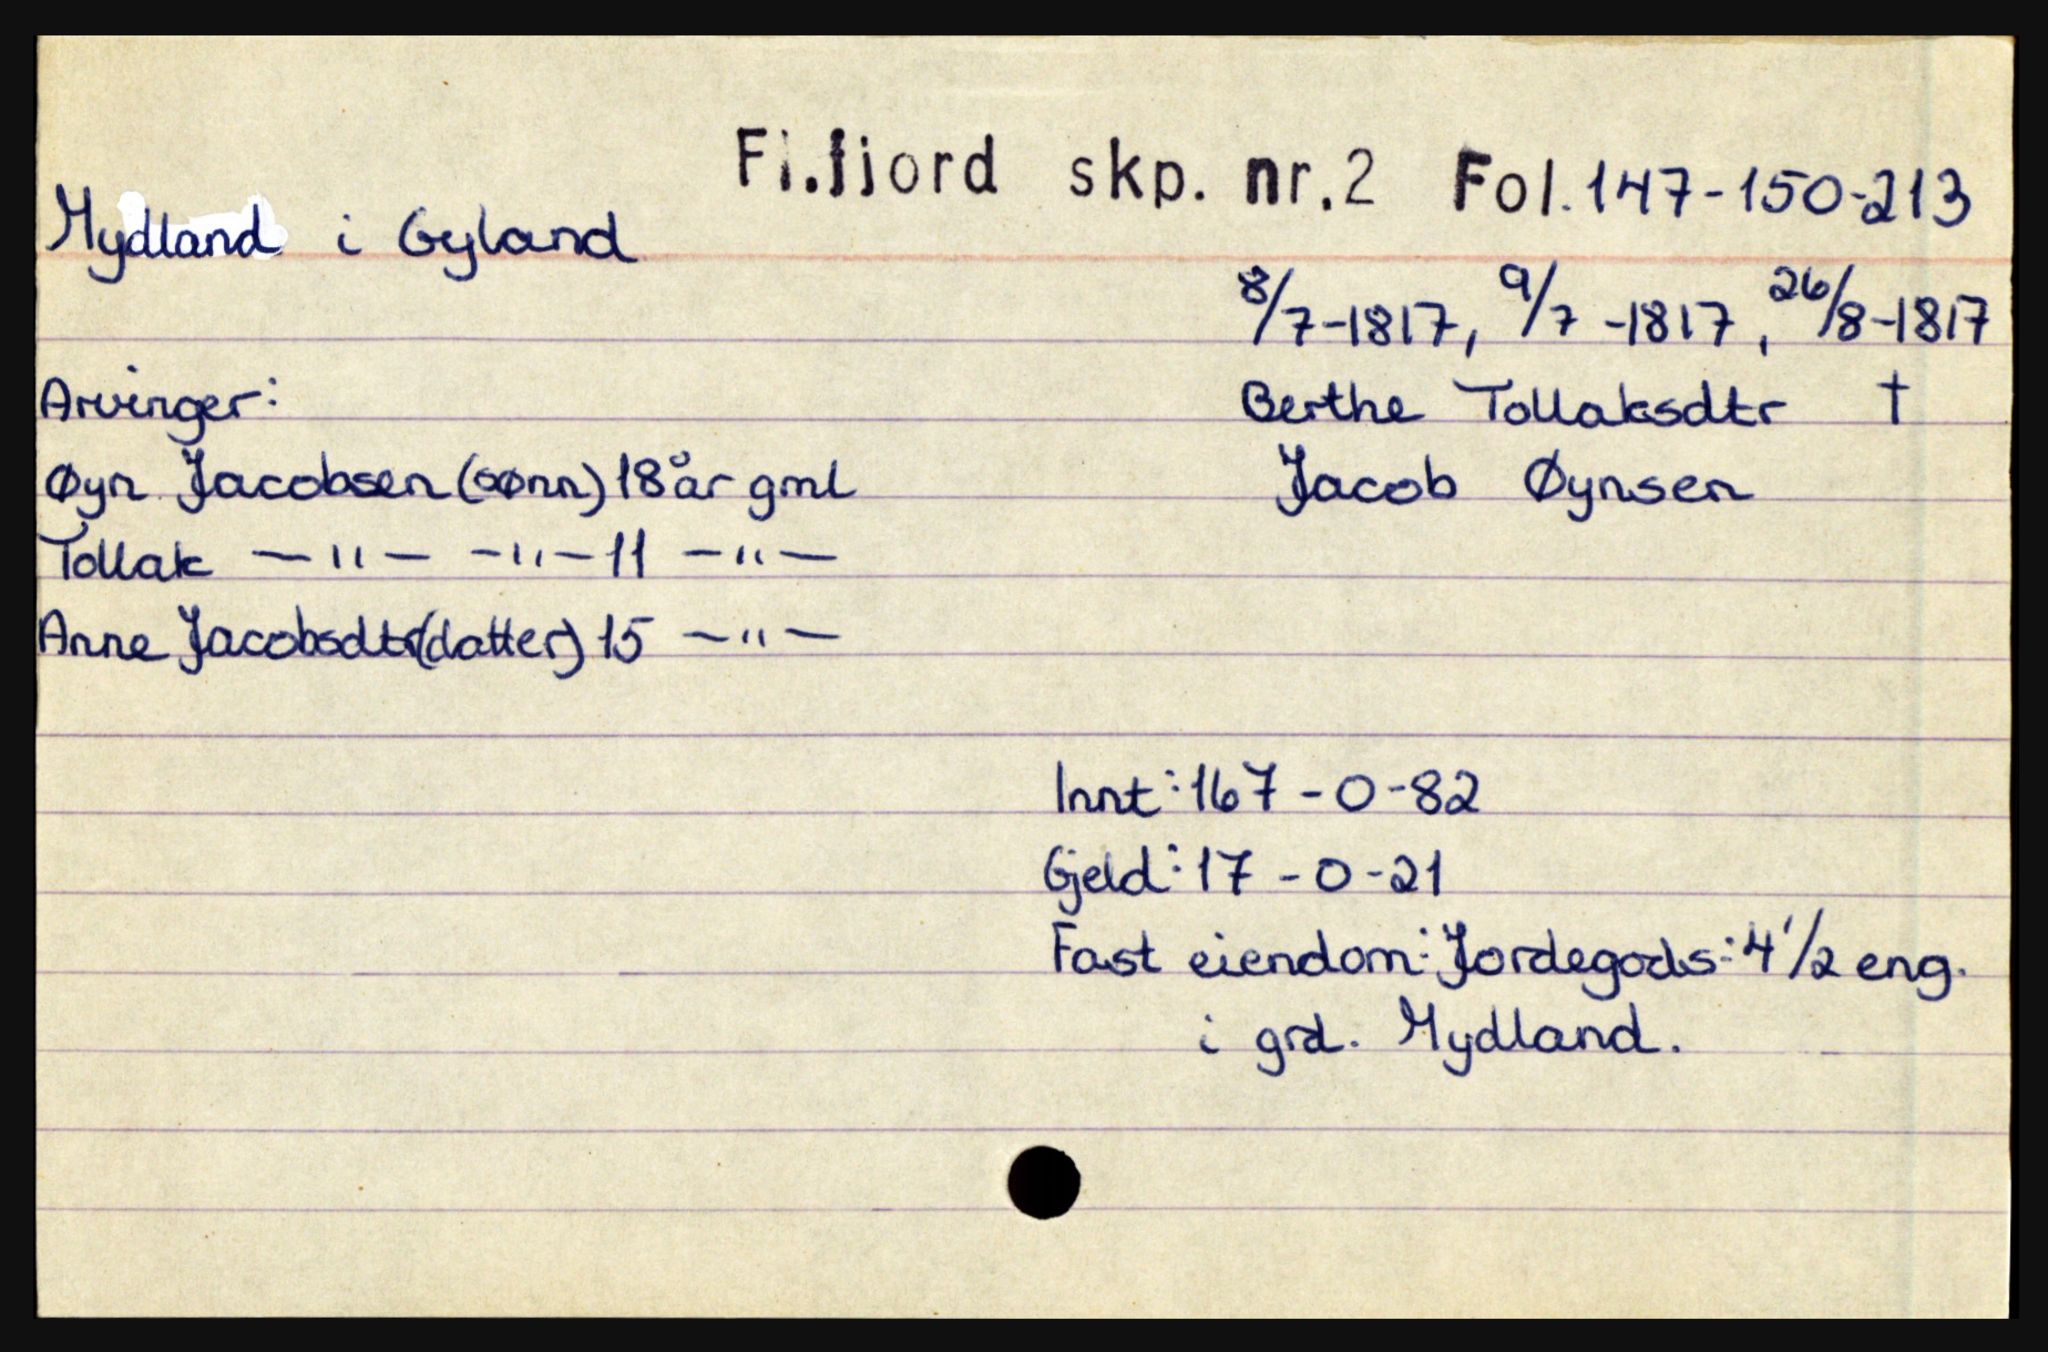 Fl.fjord skp. nr.2 Fol.147-150-213
Mydland i Gyland
8/7-1817, 9/7-1817, 26/8-1817
Arvinger:
Berthe Tollaksdtr †
Øyn Jacobsen (sønn) 18 år gml
Jacob Øynsen
Tollak —"— —"— 11 —"—
Anne Jacobsdtr (datter) 15 —"—
Innt: 167 - 0 - 82
Gjeld: 17 - 0 - 21
Fast eiendom: Jordegods: 4 1/2 eng.
i grd. Mydland.